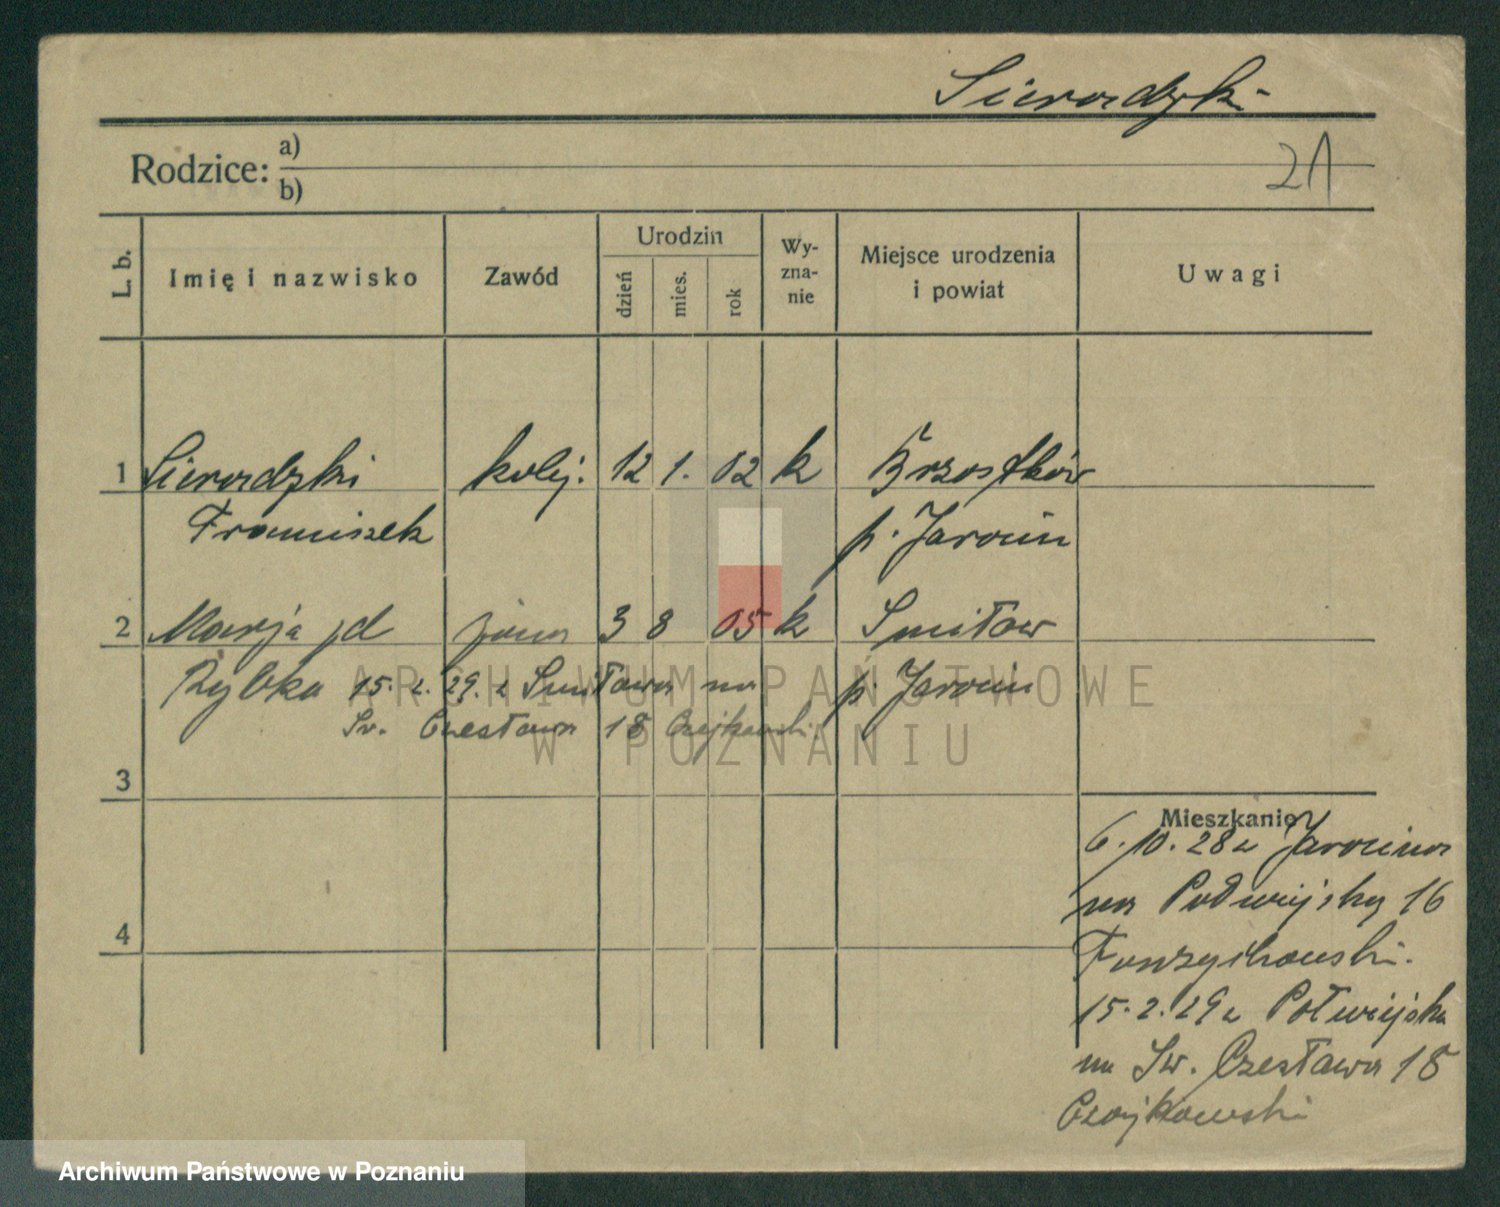 Sieradzki
21
Rodzice: a)
b)
L. b.
Imię i nazwisko
Zawód
Urodzin
dzień
mies.
rok
Wy-
zna-
nie
Miejsce urodzenia
i powiat
Uwagi
1 Sieradzki kolej. 12 1. 02 k Brzostków
Franciszek p. Jarocin
2 Marja zd żona 3 8 05 k Smiłow
Rybka 15. 2. 29. z Smiłowa na p. Jarocin
Św. Czesława 18 Czajkowski.
3
4
Mieszkanie
6. 10. 28 z Jarocina
na Półwiejską 16
15. 2. 29 z Półwiejska
na Św. Czesława 18
Czajkowski
ARCHIWUM PAŃSTWOWE
W POZNANIU
Archiwum Państwowe w Poznaniu